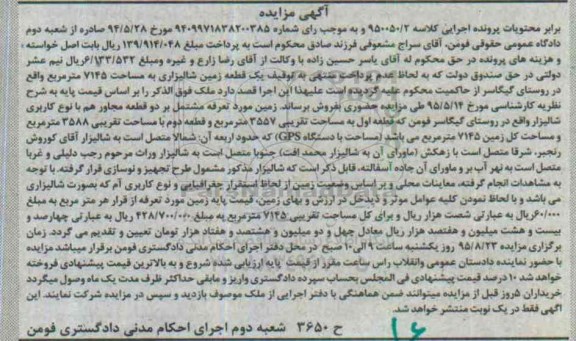 آگهی مزایده
برابر محتویات پرونده اجرایی کلاسه ۹۵۰۰۵۰/۲ و به موجب رای شماره ۹۴۰۹۹۷۱۸۳۸۲۰۰۳۸۵ مورخ ۹۴/۵/۲۸ صادره از شعبه دوم
دادگاه عمومی حقوقی فومن، آقای سراج مشعوفی فرزند صادق محکوم است به پرداخت مبلغ ۱۳۹/۹۱۴/۰۴۸ ریال بابت اصل خواسته
و هزینه های پرونده در حق محکوم له آقای یاسر حسین زاده با وکالت از آقای رضا زارع و غیره ومبلغ ۶/۱۳۳/۵۳۲ریال نیم عشر
دولتی در حق صندوق دولت که به لحاظ عدم پرداخت منتهی به توقیف یک قطعه زمین شالیزاری به مساحت ۷۱۴۵ مترمربع واقع
در روستای گیگاسر از حاکمیت محکوم علیه گردیده است علیهذا این اجرا قصد دارد ملک فوق الذکر را بر اساس قیمت پایه به شرح
نظریه کارشناسی مورخ ۹۵/۵/۱۴ طی مزایده حضوری بفروش برساند. زمین مورد تعرفه مشتمل بر دو قطعه مجاور هم با نوع کاربری
شالیزار واقع در روستای گیگاسر فومن که قطعه اول به مساحت تقریبی ۳۵۵۷ مترمربع و قطعه دوم با مساحت تقریبی ۳۵۸۸ مترمربع
و مساحت کل زمین ۷۱۴۵ مترمربع می باشد (مساحت با دستگاه GPS) که حدود اربعه آن: شمالا متصل است به شالیزار آقای کوروش
رنجبر، شرقا متصل است با زهکش (ماورای آن به شالیزار محمد افت) جنوبا متصل است به شالیزار وراث مرحوم رجب دلیلی و غربا
متصل است به نهر آب بر و ماورای آن جاده آسفالته، قابل ذکر است که شالیزار مذکور مشمول طرح تجهیز و نوسازی قرار نگرفته. با توجه
به مشاهدات انجام گرفته، معاینات محلی و بر اساس وضعیت زمین از لحاظ استقرار جغرافیایی و نوع کاربری آن که بصورت شالیزاری
می باشد و با لحاظ نمودن کلیه عوامل موثر و ذیدخل در ارزش و بهای زمین، قیمت پایه زمین مورد تعرفه از قرار هر متر مربع به مبلغ
۶۰/۰۰۰ریال به عبارتی شصت هزار ریال و برای کل مساحت تقریبی ۷۱۴۵ مترمربع به مبلغ ۴۲۸/۷۰۰/۰۰۰ ریال به عبارتی چهارصد و
بیست و هشت میلیون و هفتصد هزار ریال معادل چهل و دو میلیون و هشتصد و هفتاد هزار تومان تعیین و تقدیم می گردد. زمان
برگزاری مزایده ۹۵/۸/۲۳ روز یکشنبه ساعت ۹ الی ۱۰ صبح در محل دفتر اجرای احکام مدنی دادگستری فومن برقرار میباشد مزایده
با حضور نماینده دادستان عمومی وانقلاب راس ساعت مقرر از قیمت پایه ارزیابی شده شروع و به بالاترین قیمت پیشنهادی فروخته
خواهد شد. ۱۰ درصد قیمت پیشنهادی فی المجلس بحساب سپرده دادگستری واریز و مابقی حداکثر ظرف مدت یک ماه وصول میگردد
خریداران ۵روز قبل از مزایده میتوانند ضمن هماهنگی با دفتر اجرایی از ملک موصوف بازدید و سپس در مزایده شرکت نمایند. این
آگهی فقط در یک نوبت منتشر خواهد شد.
ح ۳۶۵۰ شعبه دوم اجرای احکام مدنی دادگستری فومن
۱۶